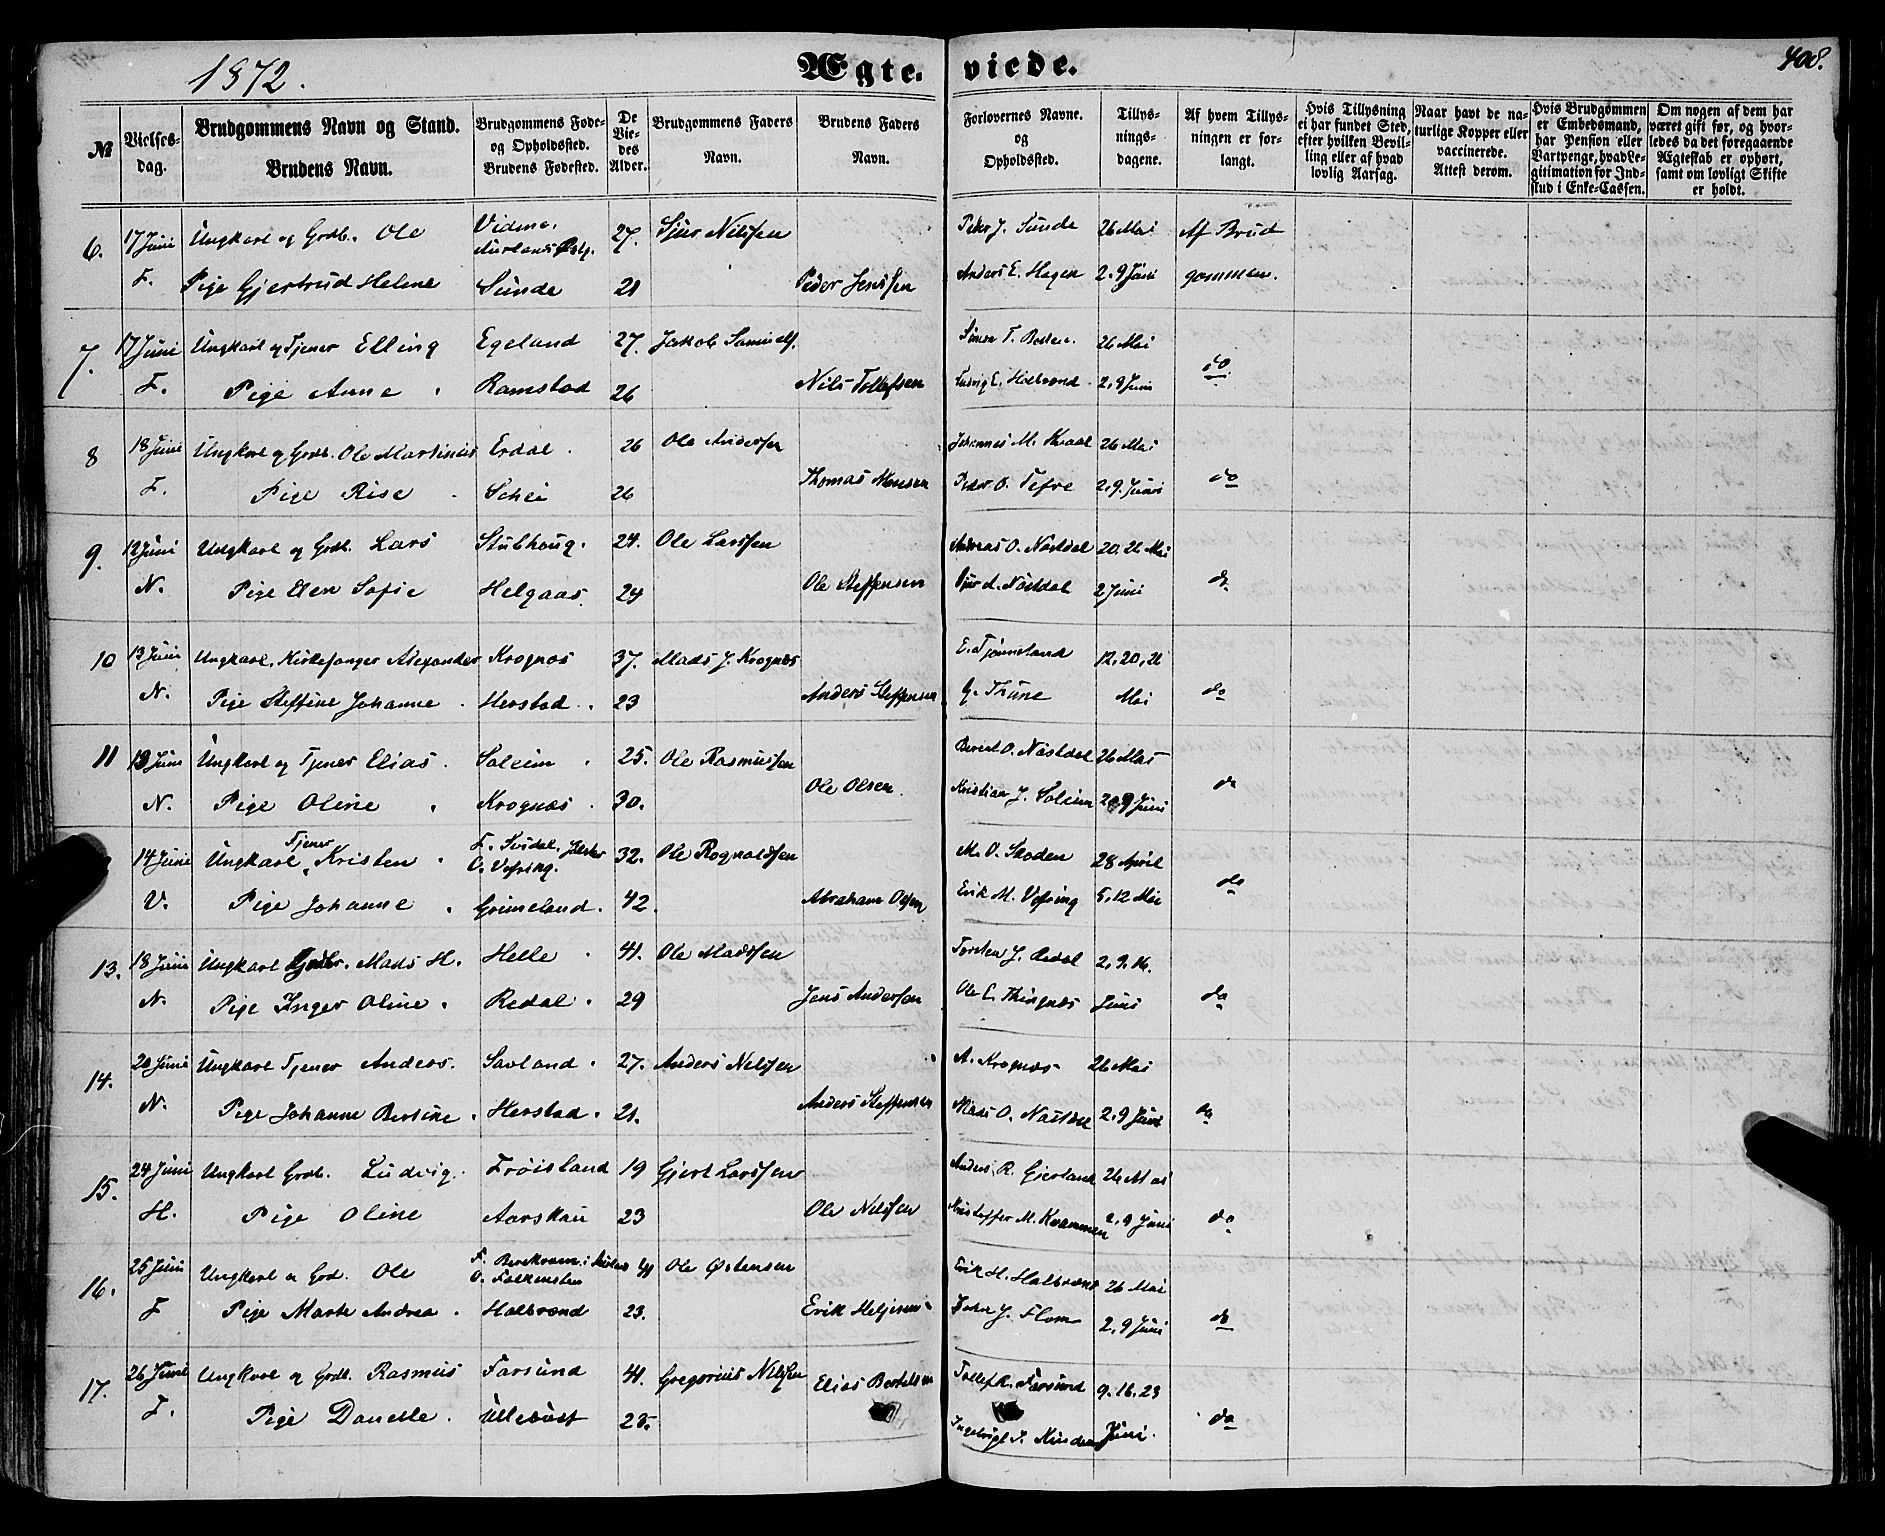 1872.
Ægte. viede.
408.
№
Vielses-dag.
Brudgommens Navn og Stand.
Brudens Navn.
Brudgommens Føde- og Opholdssted.
Brudens Fødested.
De Viedes Alder.
Brudgommens Faders Navn.
Brudens Faders Navn.
Forlovernes Navne. og Opholdssted.
Tillysningsdagene.
Af hvem Tillysningen er forlangt.
Hvis Tillysning ei har fundet Sted, efter hvilken Bevilling eller af hvad lovlig Aarsag.
Naar havt de naturlige Kopper eller vaccinerede. Attest derom.
Hvis Brudgommen er Embedsmand, har Pension eller Vartpenge, hvad Legitimation for Indskud i Enke-Cassen.
Om nogen af dem har været gift før, og hvorledes da det foregaaende Ægteskab er ophørt, samt om lovligt Skifte er holdt.
6. 17 Juni Ungkarl og Grdb. Ole Vidme, Aurlands 27. Sjur Nilssen Peder J. Sunde 26 Mai Af Brud
F. Pige Gjertrud Helene Sunde 21 Peder Jenssen Anders E. Hagen 2. 9 Juni gommen.
7. 17 Juni Ungkarl og Tjener Elling Egeland 27. Jakob Samuels. Simon T. 26 Mai
F. Pige Anne Ramstad 26 Nils Tollefsen Ludvig E. Halbrend 2, 9 Juni do
8 18 Juni Ungkarl og Grdb. Ole Martinus Erdal 26 Ole Andersen Johannes M. 26 Mai
F. Pige Rise Schei 26 Thomas Monsen Peder O. Tefre 2, 9. Juni do
9. 12 Juni Ungkarl og Grdb. Lars Stubhoug. 24. Ole Larssen Andreas O. Nøstdal 20. 26 Mai
N. Pige Elen Sofie Helgaas 24 Ole Steffensen A. Nøstdal 2 Juni do
10 13 Juni Ungkarl, Kirkesanger Alexander Krognæs 37. Mads J. Krognæs E. Tjønneland 12, 20, 26
N. Pige Steffine Johanne Herstad 23 Anders Steffensen G. Thune Mai do
11 13 Juni Ungkarl og Tjener Elias Soleim 25. Ole Rasmussen Berent O. Nøstdal 26 Mai
N. Pige Oline Krognæs 30. Ole Olsen Kristian J. Soleim 2. 9 Juni do
14 Juni Ungkarl, Tjener Kristen F. O. Vefring. 32. Ole Rognaldsen M. O. Skoden 28 April
V. Pige Johanne Grimeland. 42. Abraham Olsen Erik M. Vefring 5, 12 Mai do
13. 18 Juni Ungkarl Grdbr. Mads H. Helle 41. Ole Madssen Torsten J. Redal 2, 9. 16.
N. Pige Inger Oline Redal 29 Jens Anderssen Ole E. Thingnæs Juni do
14. 20 Juni Ungkarl Tjener Anders. Savland 27. Anders Nilssen A. Krognæs 26 Mai
N. Pige Johanne Bertine Herstad 21. Anders Steffensen Mads O. Nøstdal 2, 9 Juni do
15. 24 Juni Ungkarl Grdb. Ludvig. Frøisland 19 Gjert Larssen Anders R. Gjerland 26 Mai
H. Pige Oline Aarskau 23 Ole Nilssen Kristoffer M. Kvammen 2, 9 Juni do
16. 25 Juni Ungkarl og Grd. Ole F. Berekvam i O. Falkensten Ole Østensen Erik H. Halbrend 26 Mai
F Pige Marte Andrea Halbrend 23. Erik Heljesen J. Flom 2, 9 Juni do
17. 26 Juni Ungkarl og Grdb. Rasmus Farsund 41. Gregorius Nilssen Tollef R. Farsund 9. 16. 23
F. Pige Danelle. Ullebust 25. Elias Bertelsen Juni. do